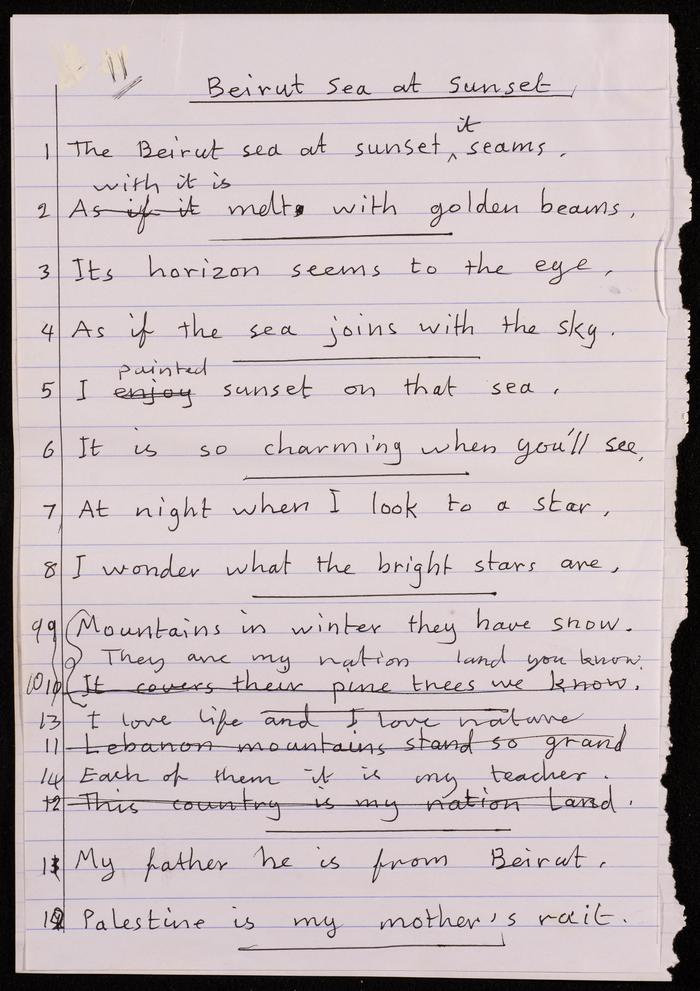 11
Beirut Sea at Sunset
it
1 The Beirut sea at sunset, seams,
with it is
2 As if it melts with golden beams,
3 Its horizon seems to the eye,
4 As if the sea joins with the sky.
painted
5 I enjoy sunset on that sea,
6 It is so charming when you'll see,
7 At night when I look to a star,
8 I wonder what the bright stars are,
9 Mountains in winter they have snow.
They are my nation land you know.
10 It covers their pine trees we know.
13 I love life and I love nature
11 Lebanon mountains stand so grand
14 Each of them it is my teacher.
12 This country is my nation Land.
11 My father he is from Beirut,
12 Palestine is my mother's rait.